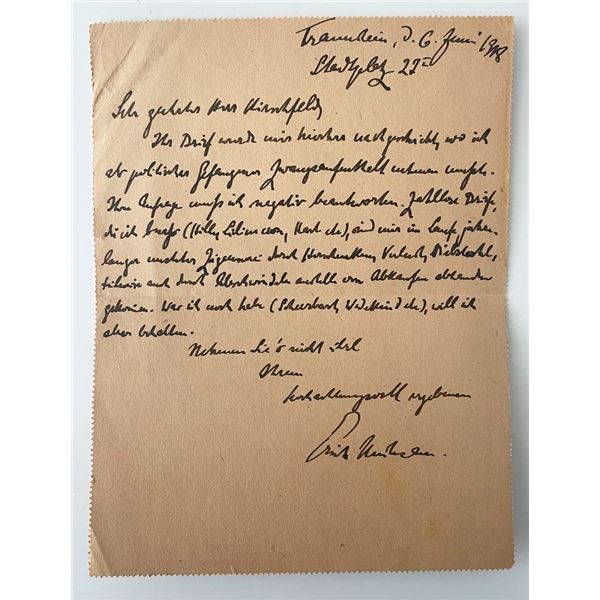 Traunstein, d. 6. Juni 1918
Stadtplatz 27 II
Sehr geehrter Herr Hirschfeld,
Ihr Brief wurde mir hierher nachgeschickt, wo ich
als politischer Gefangener Zwangsaufenthalt nehmen musste.
Ihre Anfrage muss ich negativ beantworten. Zahllose Briefe,
die ich besass (Hille, Liliencron, Hart etc), sind mir im Laufe jahre-
langer unsteter Zigeunerei durch Verschenken, Verlust, Diebstahl,
teilweise auch durch Beschwindeln anstelle von Abkaufen abhanden
gekommen. Was ich noch habe (Scheerbart, Wedekind etc), will ich
aber behalten.
Nehmen Sie's nicht übel
Ihrem
hochachtungsvoll ergebenen
Erich Mühsam.